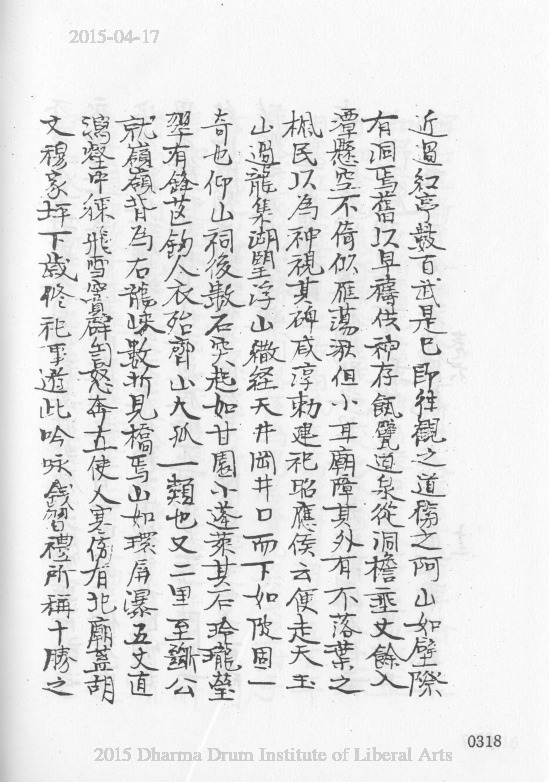 2015-04-17
近過紅亭數百武是巳即往觀之道傍之阿山如壁際
有洞焉舊以旱禱供神存瓴甓道泉從洞檐垂丈餘入
潭懸空不倚似雁蕩湫但小耳廟障其外有不落葉之
楓民以為神視其碑咸淳勅建祀昭應侯云便走天玉
山過龍集湖望浮山徽經天井岡井口而下如陂固一
奇也仰山祠後數石突起如甘園小蓬萊其石玲瓏瑩
翠有鋒芒鉤人衣殆齊山大孤一類也又二里至謝公
就嶺嶺背為右龍峽數折見橋焉山如環屏瀑五丈直
瀉壑中練飛雪窨辟匉怒奔十使人寒傍有北廟蓋胡
文穆家坪下歲修祀事遊此吟咏錢習禮所稱十勝之
0318
2015 Dharma Drum Institute of Liberal Arts